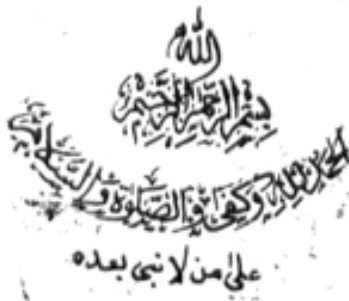 الله
بسم الله الرحمن الرحيم
الحمد لله وكفى والصلوة والسلام
على من لا نبى بعده